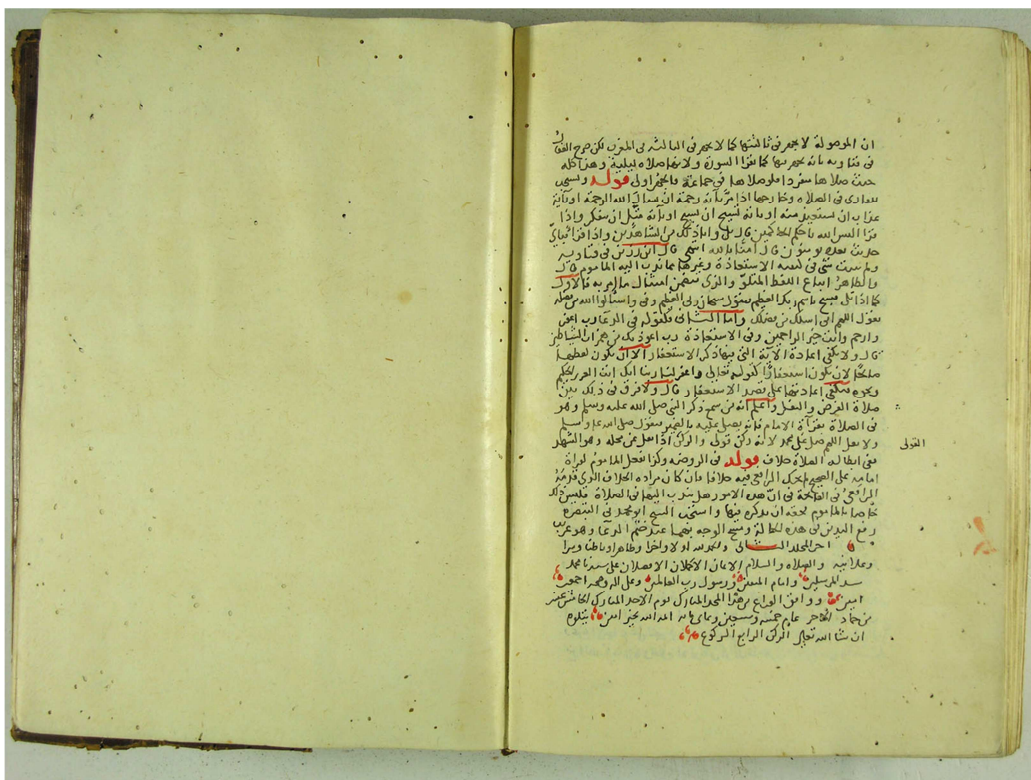 ان الموصولة لا يجهر في ثالثتها كما لا يجهر في الثالثة في المغرب لكن صرح القفال
في فتاويه بانه يجهر بها كما يقرا السورة ولانها صلاة ليلية وهذا كله
حيث صلاها منفردا فلو صلاها في جماعة فالجهر اولى قوله ويستحب
للقاري في الصلاة وخارجها اذا مر بآية رحمة ان يسال الله الرحمة او بآية
عذاب ان يستعيذ منه او بآية تسبيح ان يسبح او بآية مثل ان يتفكر واذا
قرا اليس الله باحكم الحاكمين قال بلى وانا على ذلك من الشاهدين واذا قرا فباي
حديث بعده يومنون قال آمنا بالله انتهى قال ابن رزين في فتاويه
ولم يثبت شي في كيفية الاستعاذة وغيرها مما يندب اليه الماموم قال
والظاهر اتباع اللفظ المتلو والذي يتضمن امتثال ما امر به فالاول
كما اذا تلى فسبح باسم ربك العظيم فيقول سبحان ربي العظيم وفي واسئلوا الله من فضله
يقول اللهم اني اسلك من فضلك واما الثاني فكقوله في الدعا رب اغفر
وارحم وانت خير الراحمين وفي الاستعاذة رب اعوذ بك من همزات الشياطين
قال ولا يكفي اعادة الآية التي فيها ذكر الاستغفار الا ان يكون لفظها
صالحا لان يكون استغفارا كقوله تعالى واغفر لنا ربنا انك انت العزيز الحكيم
ونحوه فيكفي اعادتها على قصد الاستغفار قال ولا فرق في ذلك بين
صلاة الفرض والنفل واعلم انه من سمع ذكر النبي صلى الله عليه وسلم وهو
في الصلاة بقرآة الامام فانه يصلي عليه بالضمير فيقول صلى الله عليه وسلم
ولا يقل اللهم صل على محمد لانه ركن قولي والركن اذا نقل عن محله وهو التشهد
القولي
ففي ابطاله الصلاة خلاف قوله في الروضة وكذا يفعل الماموم لقراة
امامه على الصحيح لم يحك الرافعي فيه خلافا فان كان مراده الخلاف الذي قدمه
الرافعي في الفاتحة في ان هذه الامور هل يندب اليها في الصلاة فليس ذلك
خاصا بالماموم فحقه ان يذكره فيها واستحب الشيخ ابو محمد في التبصرة
رفع اليدين في هذه الحالة ومسح الوجه بهما عند ختم الدعا وهو غريب
اخر المجلد الثاني والحمد لله اولا واخرا وظاهرا وباطنا وسرا
وعلانية والصلاة والسلام الاتمان الاكملان الافضلان على سيدنا محمد
سيد المرسلين وامام المتقين ورسول رب العالمين وعلى اله وصحبه اجمعين
امين ووافق الفراغ من هذا المجلد المبارك يوم الاحد المبارك الخامس عشر
من جماد الاخر عام خمسة وتسعين وثماي مايه الله بخير امين يتلوه
ان شا الله تعالى الركن الرابع الركوع